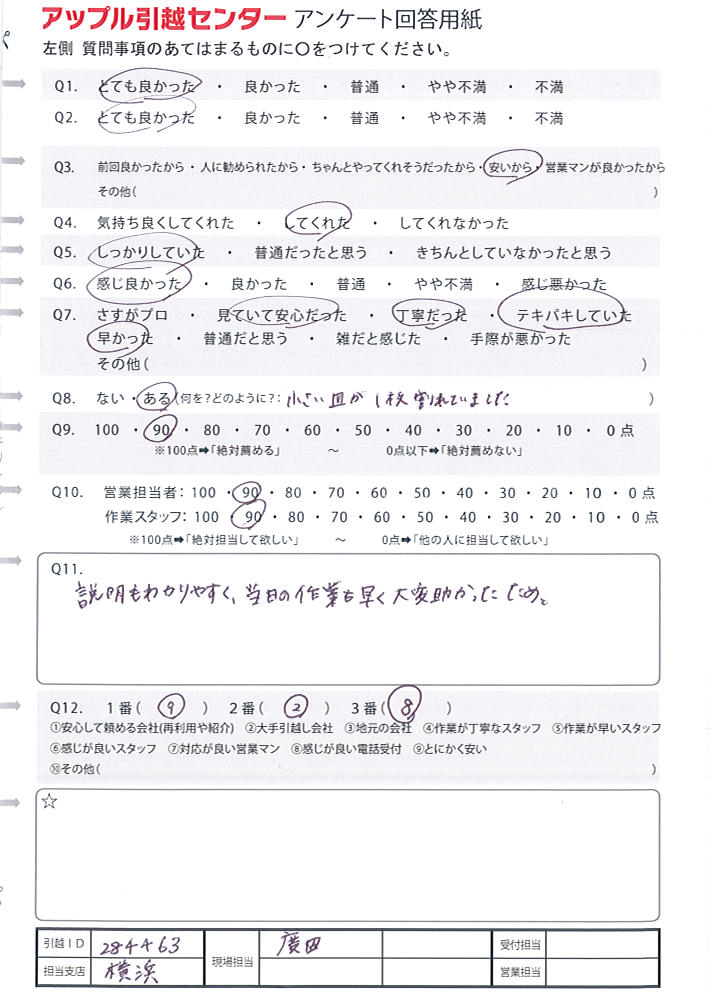 アップル引越センター アンケート回答用紙
左側 質問事項のあてはまるものに〇をつけてください。
Q1. とても良かった ・ 良かった ・ 普通 ・ やや不満 ・ 不満
Q2. とても良かった ・ 良かった ・ 普通 ・ やや不満 ・ 不満
Q3. 前回良かったから・人に勧められたから・ちゃんとやってくれそうだったから・安いから・営業マンが良かったから
その他( )
Q4. 気持ち良くしてくれた ・ してくれた ・ してくれなかった
Q5. しっかりしていた ・ 普通だったと思う ・ きちんとしていなかったと思う
Q6. 感じ良かった ・ 良かった ・ 普通 ・ やや不満 ・ 感じ悪かった
Q7. さすがプロ ・ 見ていて安心だった ・ 丁寧だった ・ テキパキしていた
早かった ・ 普通だと思う ・ 雑だと感じた ・ 手際が悪かった
その他( )
Q8. ない・ある(何を?どのように?:小さい皿が1枚割れていました )
Q9. 100 ・ 90 ・ 80 ・ 70 ・ 60 ・ 50 ・ 40 ・ 30 ・ 20 ・ 10 ・ 0点
※100点➡「絶対薦める」 ～ 0点以下➡「絶対薦めない」
Q10. 営業担当者:100 ・ 90 ・ 80 ・ 70 ・ 60 ・ 50 ・ 40 ・ 30 ・ 20 ・ 10 ・ 0点
作業スタッフ:100 ・ 90 ・ 80 ・ 70 ・ 60 ・ 50 ・ 40 ・ 30 ・ 20 ・ 10 ・ 0点
※100点➡「絶対担当して欲しい」 ～ 0点➡「他の人に担当して欲しい」
Q11.
説明もわかりやすく、当日の作業も早く大変助かったため。
Q12. 1番( 9 ) 2番( 2 ) 3番( 8 )
①安心して頼める会社(再利用や紹介) ②大手引越し会社 ③地元の会社 ④作業が丁寧なスタッフ ⑤作業が早いスタッフ
⑥感じが良いスタッフ ⑦対応が良い営業マン ⑧感じが良い電話受付 ⑨とにかく安い
⑩その他( )
☆
引越ID 284463 現場担当 廣田 受付担当
担当支店 横浜 営業担当